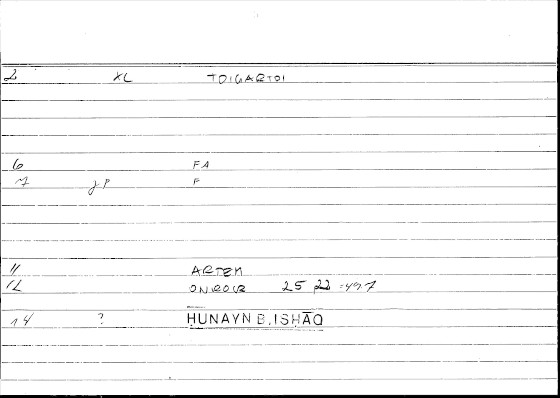 2 XL TOIGARTOI
6 FA
7 JP F
11 ARTEM
12 ONROCR 25 22 :497
14 ? HUNAYN B. ISHĀQ